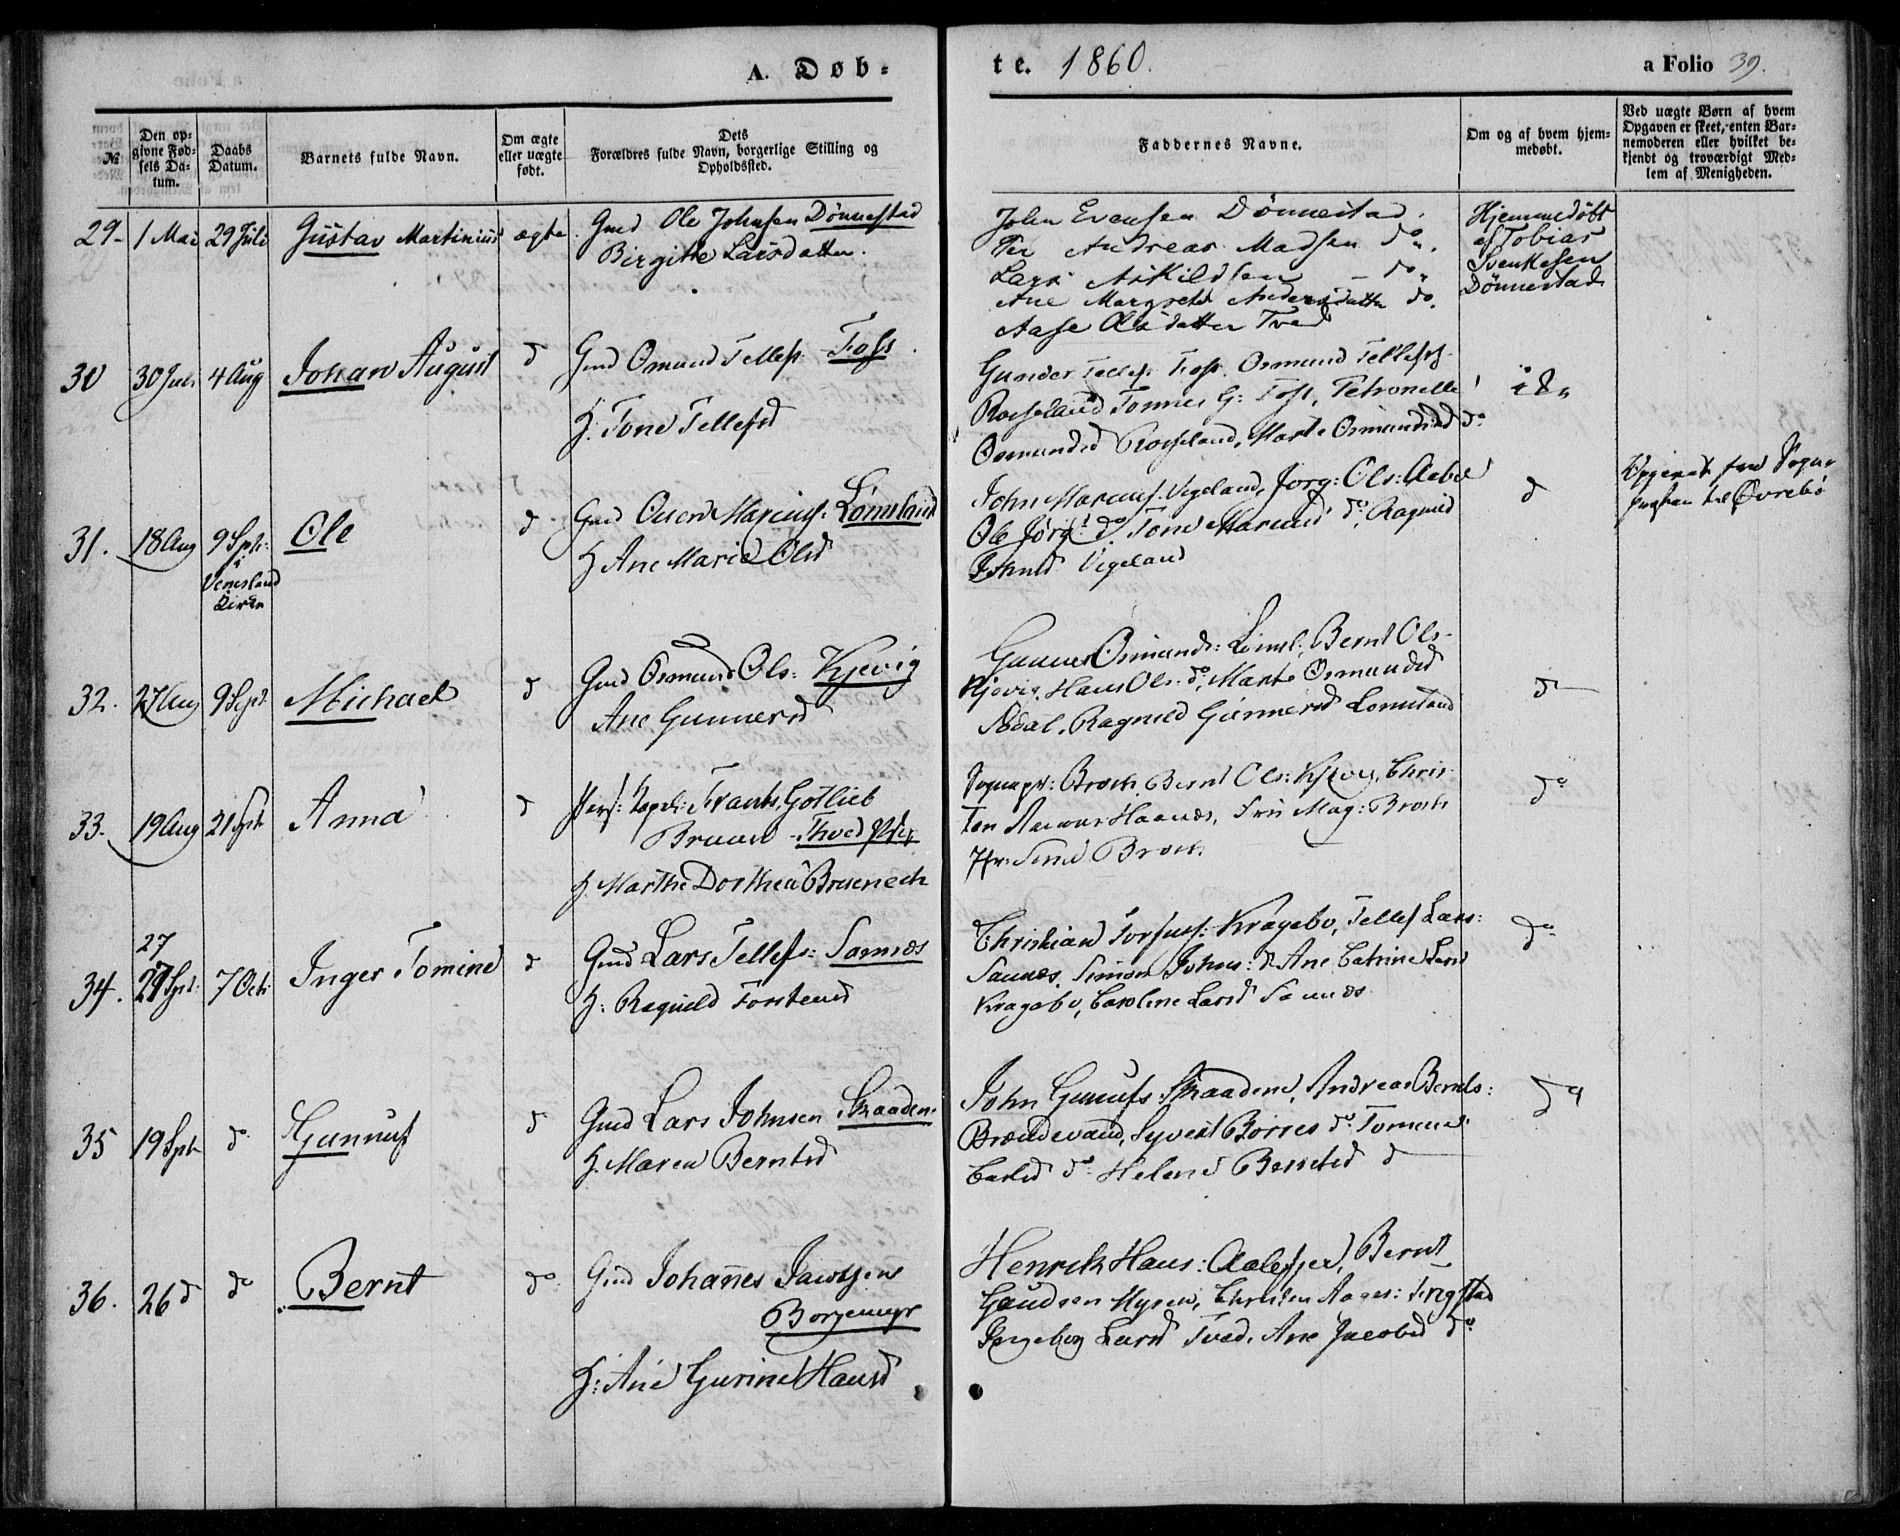 A. Døb-
te. 1860.
a Folio 39.
№
Den opgivne Fødsels Datum.
Daabs Datum.
Barnets fulde Navn.
Om ægte eller uægte født.
Dets Forældres fulde Navn, borgerlige Stilling og Opholdssted.
Faddernes Navne.
Om og af hvem hjemmedøbt.
Ved uægte Børn af hvem Opgaven er skeet, enten Barnemoderen eller hvilket bekjendt og troværdigt Medlem af Menigheden.
29. 1 Mai 29 Juli Gustav Martinius ægte Gmd Ole Johnsen Dönnestad
Birgitte Larsdatter.
John Evensen Dönnestad.
Per Andreas Madsen do.
Lars Askildsen - do.
Ane Margrete Andersdatter do.
Aase Olsdatter Tved
Hjemmedöbt
af Tobias
Svenkesen
Dönnestad
30 30 Juli 4 Aug Johan August d Gmd Osmund Tellefs. Foss.
H. Tone Tellefsd
Gunder Tellefs. Foss. Osmund Tellefs.
Rosseland Tonnes G: Foss, Petronelle
Osmundsd Rosseland, Marte Osmundsd do
31. 18 Aug 9 Spt: i Venesland Kirke Ole d Gmd Marcus: Lömsland
H Ane Marie Olsd
John Marcus. Vigeland, Jörg: Ols: Aabel
Ole Jörg: do Tone Marcusd do, Ragnild
Vigeland
d
til Øvrebö
32. 27 Aug 9 Sept Michael d Gmd Osmund Ols: Kjevig
Ane Gunnersd
Gunner Osmunds: Lömsl., Bernt Ols-
Kjevig. Hans Ols. do, Marte Osmundsd
Aadal. Ragnild Gunnersd Lomsland
d
33. 19 Aug 21 Spt Anna d Pers: Capel: Frants Gotlieb
Bruun - Tved
H Marthe Dorthea
Sognepr: Broch, Bernt Ols: Kjevig, Chris-
ten Haanes, Fru Mag: Broch
Jfr. Broch.
do
34. 27 Spt: 7 Oct: Inger Tomine d Gmd Lars Tellefs: Sannes
H: Ragnild Torstensd
Christian Torjus: Kragebo, Tellef Lars:
Sannes. Simon Johns: d Ane Catrine Larsd
Kragebo, Caroline Larsd Sannes
do
35 19 Spt do Gunnuf d Gmd Lars Johnsen Straaden.
H. Maren Berntsd
John Gunnufs Straadene, Andreas Bernts:
Brændevand, Syvert Börres do. Tomine
Carlsd do. Helene Berntsd d
do
36. 26 d do Bernt do. Gmd Johannes Jacobsen
Borgemyr
H: Ane Gurine Hansd
Henrik Hans: Aalefjer, Bernt
Gaudsen Myren, Christen Aanes: Tingstad
Ingeborg Larsd Tved. Ane Jacobsd do